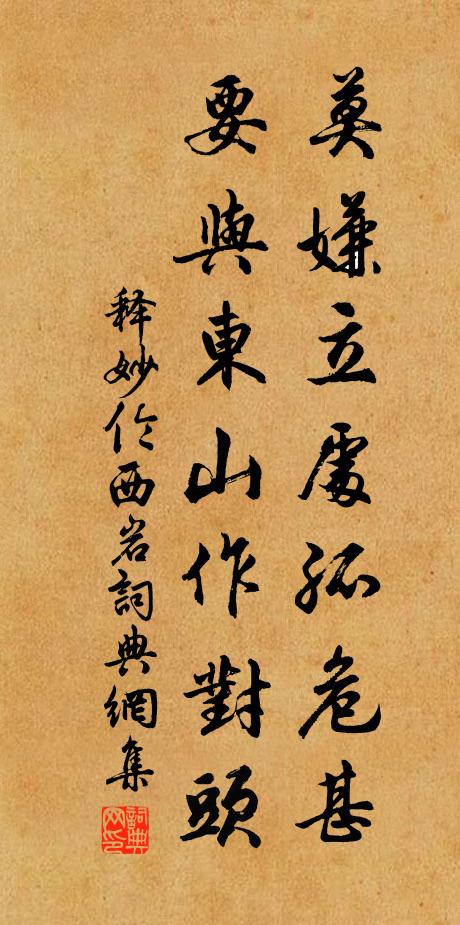 莫嫌立處孤危甚
要與東山作對頭
释妙伦西岩詞典網集
詞典网印